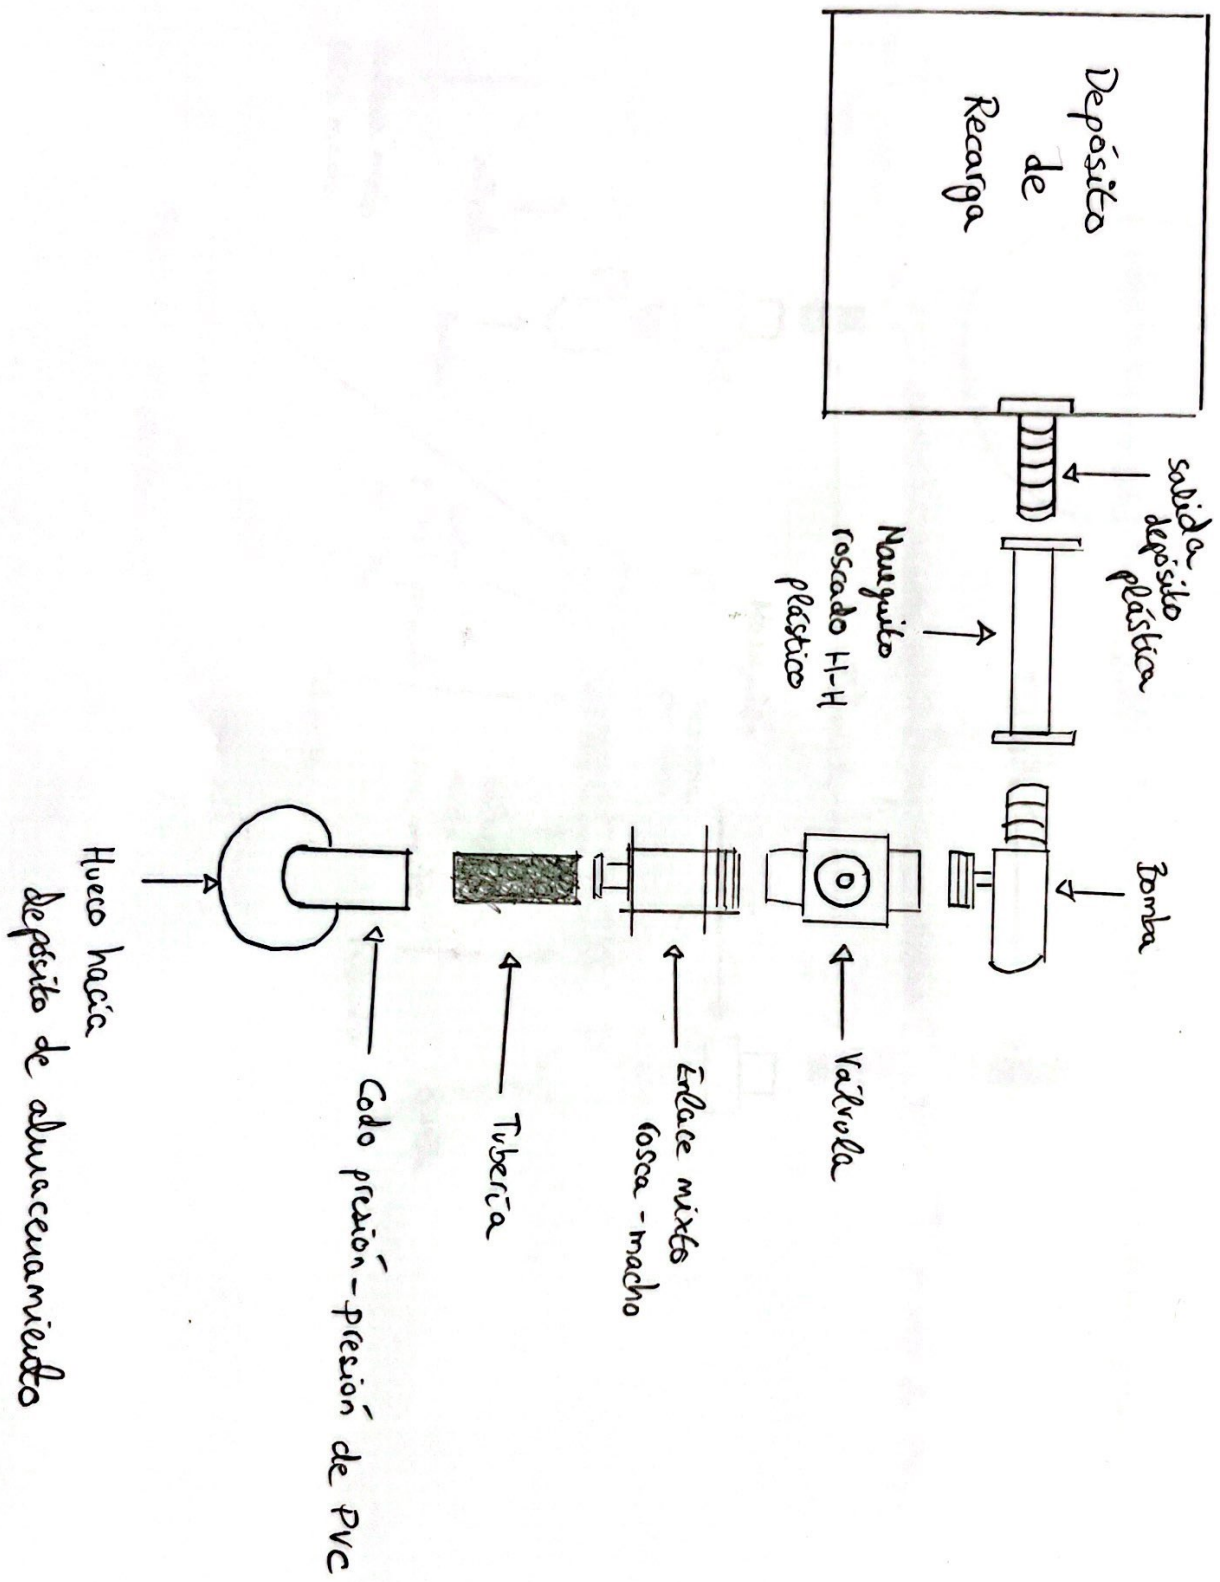 Depósito
de
Recarga
salida
depósito
plástica
Manguito
roscado H-H
plástico
Bomba
Válvula
Enlace mixto
rosca-macho
Tubería
Codo presión-presión de PVC
Hueco hacía
depósito de almacenamiento